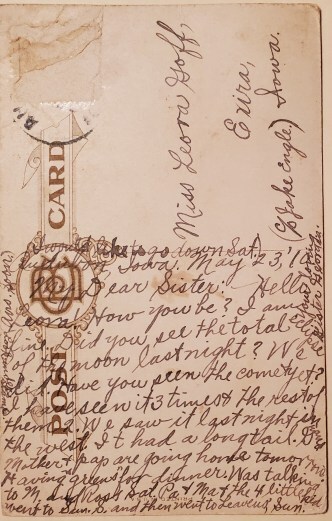 POST CARD
Miss Leora Goff,
Exira,
Iowa.
(% Jake Engle.)
I would like to go down Sat.
Iowa, May 23, '10
My Dear Sister: Hello
Leora! How you be? I am
fine. Did you see the total eclipse
of the moon last night? We
did. Have you seen the comet yet?
I have seen it 3 times & the rest of
them 2. We saw it last night in
the west. It had a long tail. Gr.
Mother & pap are going home tomor.
Having "greens" for dinner. Was talking
to M. Ross Sat. Pa & Ma & the 4 little kids
went to Sun. S. and then went to Sun.
Sister